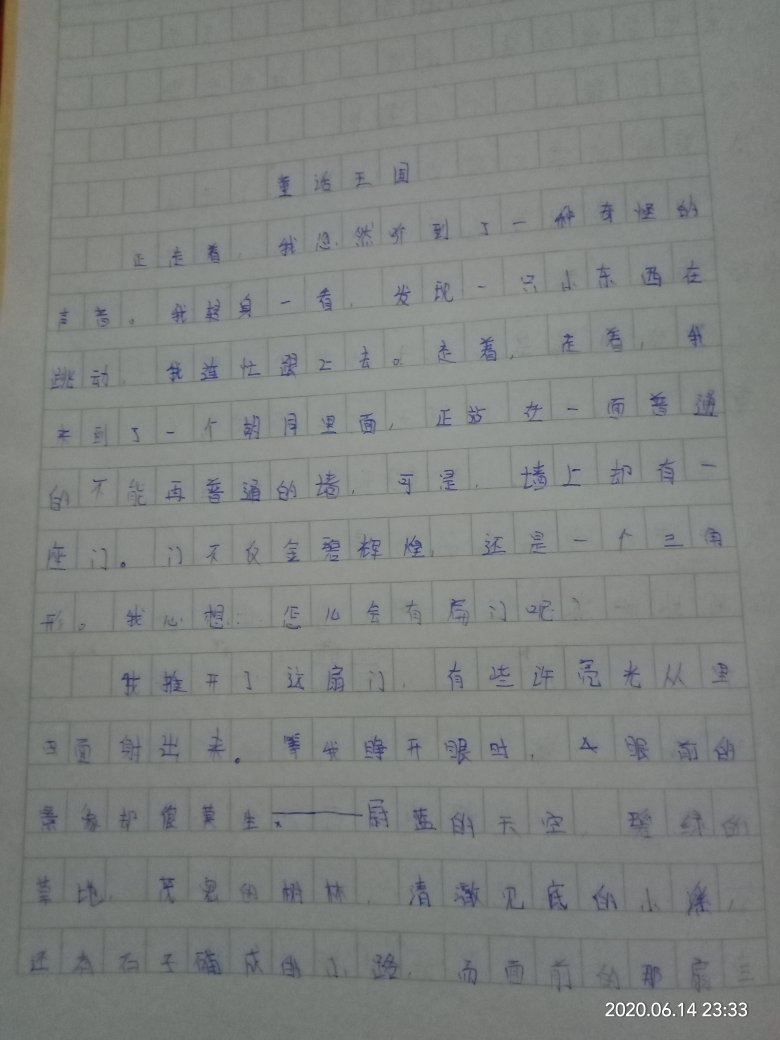 童话王国
正走着，我忽然听到了一种奇怪的
声音。我转身一看，发现一只小东西在
跳动，我连忙跟上去。走着，走着，我
来到了一个胡同里面，正站在一面普通
的不能再普通的墙，可是，墙上却有一
座门。门不仅金碧辉煌，还是一个三角
形。我心想：怎么会有扇门呢？
我推开了这扇门，有些许亮光从里
面射出来。等我睁开眼时，眼前的
景象却很莫生——尉蓝的天空，碧绿的
草地，茂密的树林，清澈见底的小溪，
还有石子铺成的小路，而面前的那扇三
2020.06.14 23:33